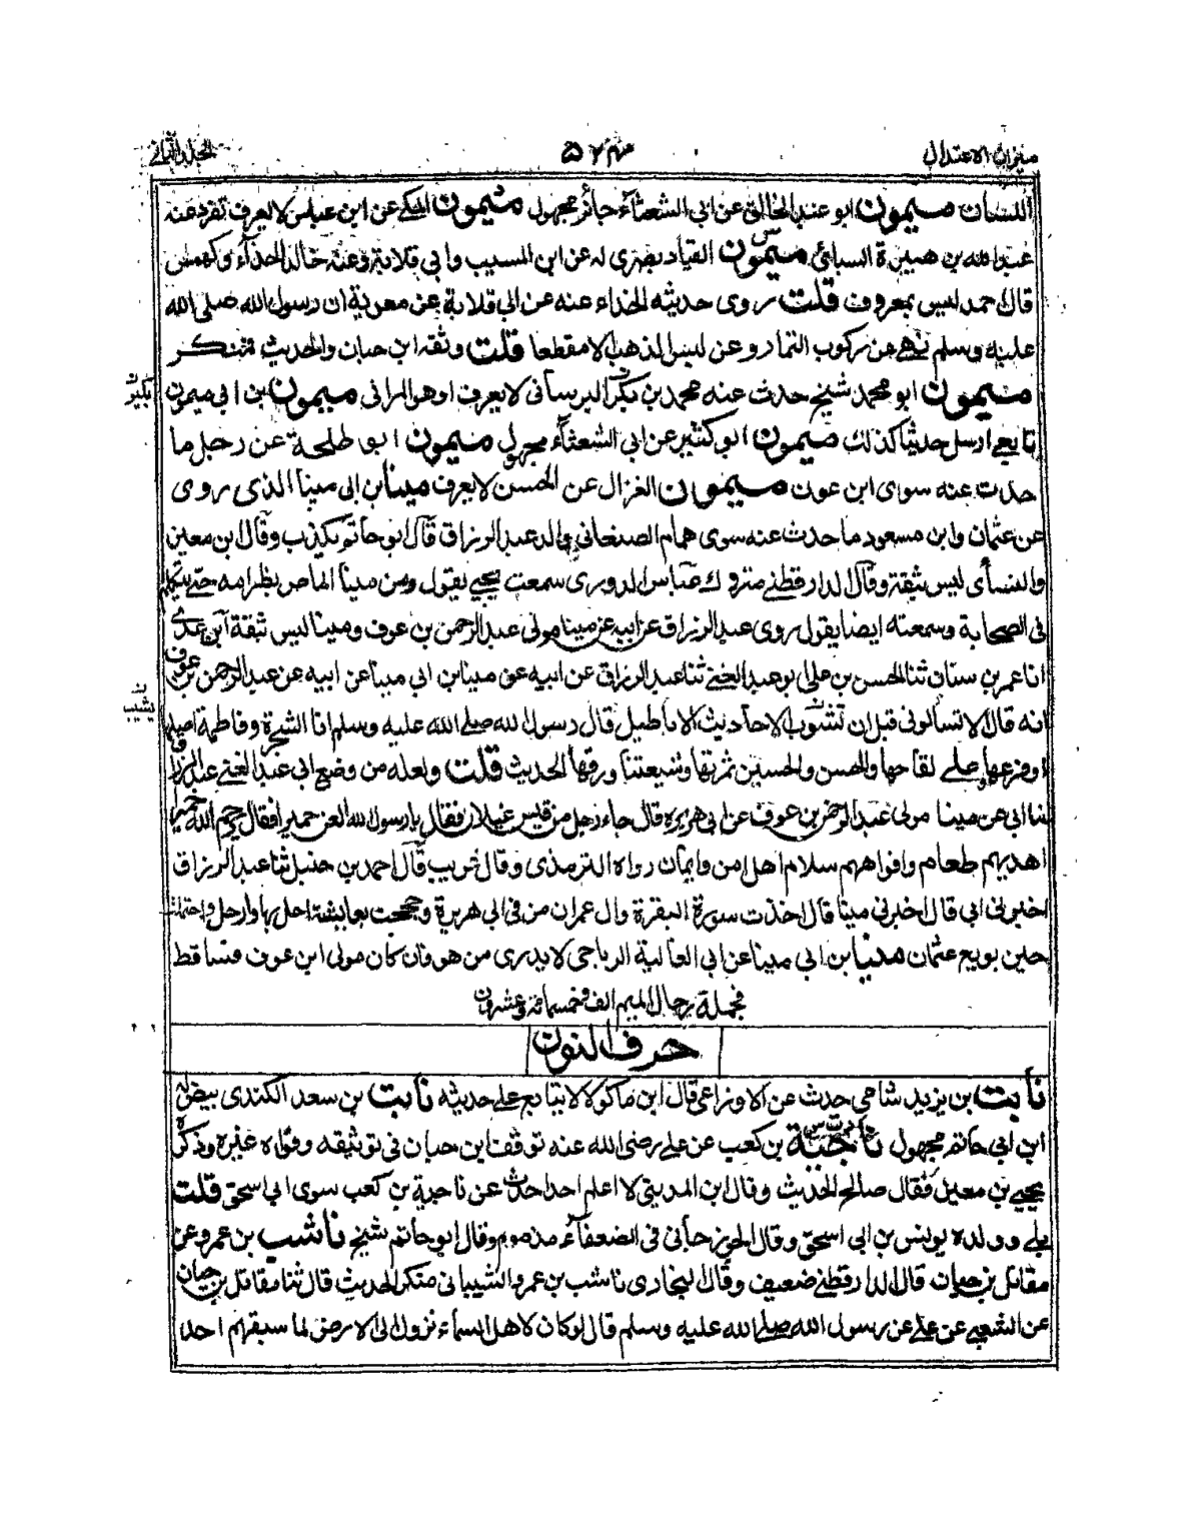 ميزان الاعتدال ٥٢٣ الجلد الثاني
اللسان ميمون ابو عبد الخالق عن ابي الشعثاء جابر مجهول ميمون المكي عن ابن عباس لا يعرف تفرد عنه
عبد الله بن هبيرة السبائي ميمون القناد بصري له عن ابن المسيب وابي قلابة وعنه خالد الحذاء وكهمس
قال حمد ليس بمعروف قلت روى حديثه الحذاء عنه عن ابي قلابة عن معوية ان رسول الله صلى الله
عليه وسلم نهى عن ركوب النمار وعن لبس الذهب الا مقطعا قلت وثقه ابن حبان والحديث منكر
ميمون ابو محمد شيخ حدث عنه محمد بن بكر البرساني لا يعرف او هو المرائي ميمون بن ابي ميمون
تابعي ارسل حديثا كذلك ميمون ابو كثير عن ابي الشعثاء مجهول ميمون ابو طلحة عن رجل ما
حدث عنه سوى ابن عون ميمون الغزال عن الحسن لا يعرف مينا بن ابي مينا الذي روى
عن عثمان وابن مسعود ما حدث عنه سوى همام الصنعاني والد عبد الرزاق قال ابو حاتم يكذب وقال ابن معين
والنسأى ليس بثقة وقال الدارقطني متروك عباس الدوري سمعت يحيى يقول ومن مينا الماص بظر امه حتى يتكلم
في الصحابة وسمعته ايضا يقول روى عبد الرزاق عن ابيه عن مينا مولى عبد الرحمن بن عوف ومينا ليس بثقة ابن عدي
انا عمر بن سنان ثنا الحسن بن علي ابو عبد الغني ثنا عبد الرزاق عن ابيه عن مينا بن ابي مينا عن ابيه عن عبد الرحمن بن عوف
انه قال لا تسألوني قبل ان تشوب الاحاديث الاباطيل قال رسول الله صلى الله عليه وسلم انا الشجرة وفاطمة اصلها
او فرعها وعلي لقاحها والحسن والحسين ثمرتها وشيعتنا ورقها الحديث قلت ولعله من وضع ابي عبد الغني عبد الرزاق
ثنا ابي عن مينا مولى عبد الرحمن بن عوف عن ابي هريرة قال جاء رجل من قيس غيلان فقال يا رسول الله العن حميرا فقال رحم الله حميرا
اهديهم طعام وافواههم سلام اهل امن وايمان رواه الترمذي وقال غريب قال احمد بن حنبل ثنا عبد الرزاق
اخبرني ابي قال اخبرني مينا قال اخذت سورة البقرة وال عمران من في ابي هريرة وحججت بعايشة احل بها وارحل واحتملت
حين بويع عثمان مينا بن ابي مينا عن ابي العالية الرياحي لا يدرى من هو فان كان مولى ابن عوف فساقط
فجملة رجال الميم الف وخمسمائة وعشرون
حرف النون
نابت بن يزيد شامي حدث عن الاوزاعي قال ابن ماكولا لا يتابع على حديثه نابت بن سعد الكندي بيض له
ابن ابي حاتم مجهول ناجية بن كعب عن علي رضى الله عنه توقف ابن حبان في توثيقه وقواه غيره وذكره
يحيى بن معين فقال صالح الحديث وقال ابن المديني لا اعلم احدا حدث عن ناجية بن كعب سوى ابي اسحق قلت
بلى وولده يونس بن ابي اسحق وقال الجوزجاني في الضعفاء مذموم وقال ابو حاتم شيخ ناشب بن عمرو عن
مقاتل بن حيان قال الدارقطني ضعيف وقال البخاري ناشب بن عمرو الشيباني منكر الحديث قال ثنا مقاتل بن حيان
عن الشعبي عن علي عن رسول الله صلى الله عليه وسلم قال لو كان لاهل السماء نزول الى الارض لما سبقهم احد
بكير
يشيب